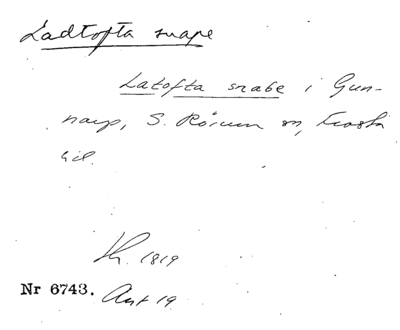 Ladtofta snape
Latofta snabe i Gun-
narp, S. Rörum sn, Frosta
hd.
Kr. 1819
Nr 6743. Ant 19